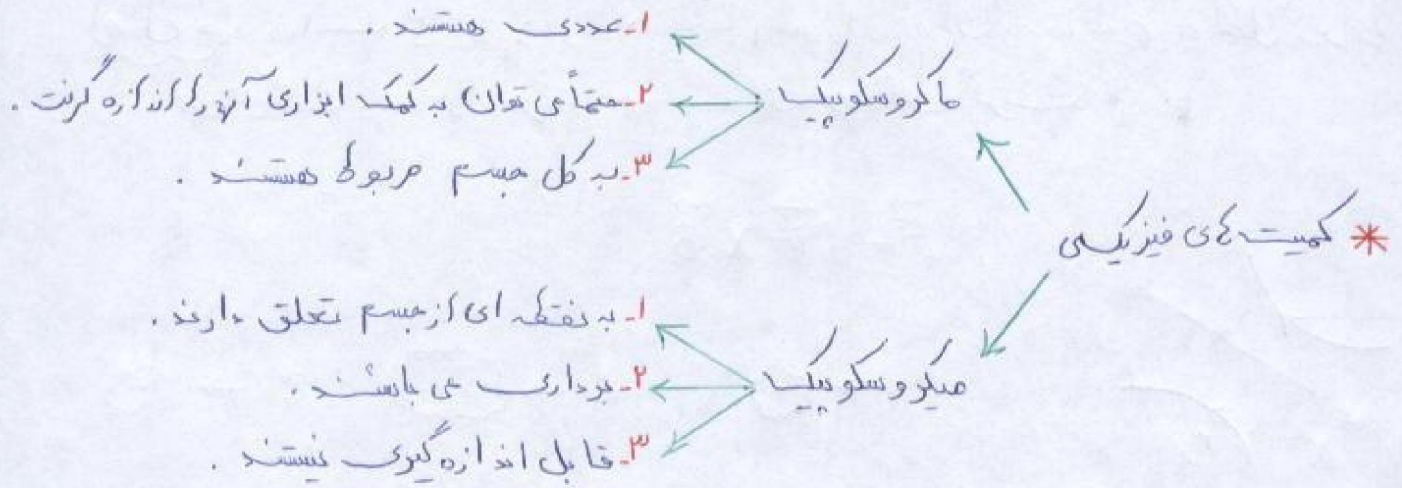 * کمیت های فیزیکی
ماکروسکوپیک
۱- عددی هستند .
۲- حتماً می توان به کمک ابزاری آنها را اندازه گرفت .
۳- به کل جسم مربوط هستند .
میکروسکوپیک
۱- به نقطه ای از جسم تعلق دارند .
۲- برداری می باشند .
۳- قابل اندازه گیری نیستند .